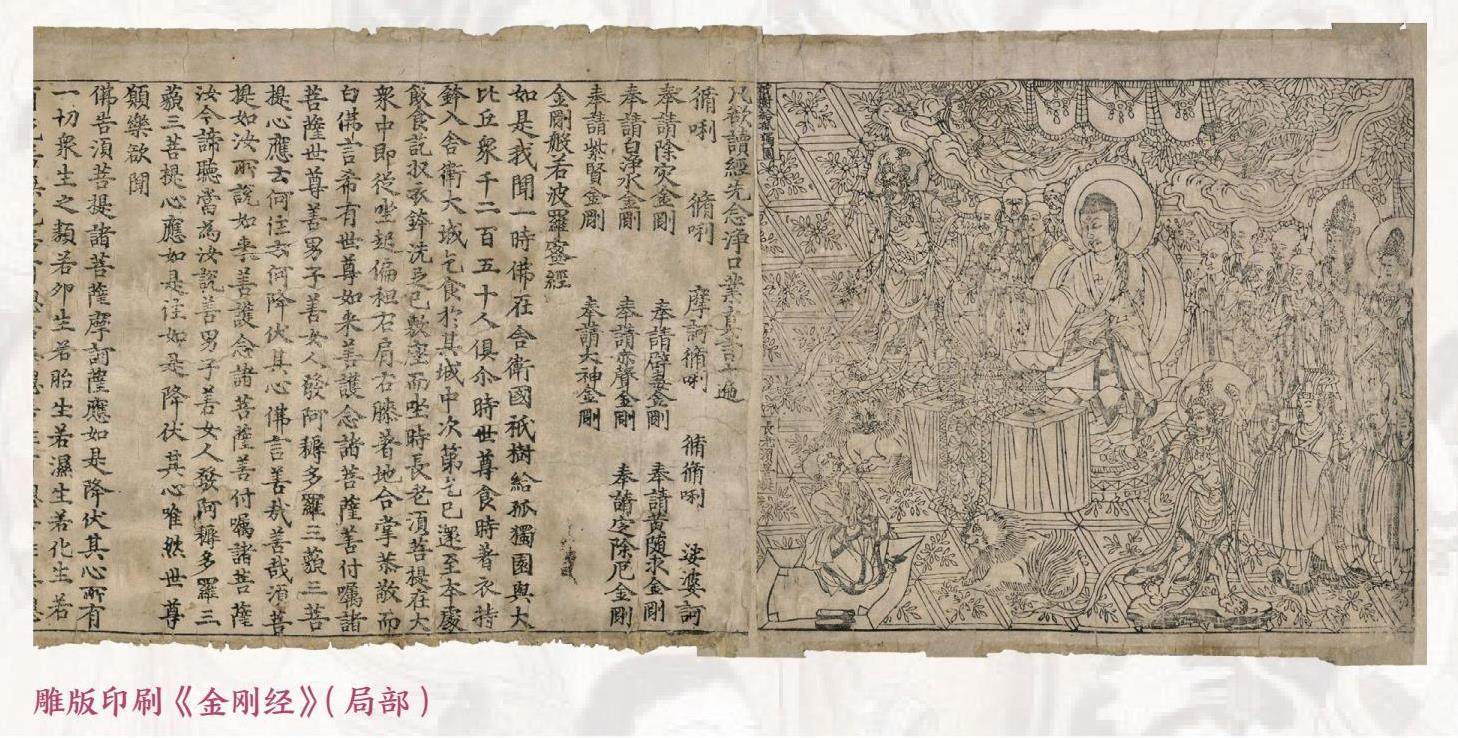 祇樹給孤獨園
凡欲讀經先念淨口業真言一遍
脩唎 脩唎 摩訶脩唎 脩脩唎 娑婆訶
奉請除災金剛 奉請辟毒金剛 奉請黃隨求金剛
奉請白淨水金剛 奉請赤聲金剛 奉請定除厄金剛
奉請紫賢金剛 奉請大神金剛
金剛般若波羅蜜經
如是我聞一時佛在舍衛國祇樹給孤獨園與大
比丘衆千二百五十人俱尒時世尊食時著衣持
鉢入舍衛大城乞食於其城中次第乞已還至本處
飯食訖收衣鉢洗足已敷座而坐時長老須菩提在大
衆中即從坐起偏袒右肩右膝著地合掌恭敬而
白佛言希有世尊如來善護念諸菩薩善付囑諸
菩薩世尊善男子善女人發阿耨多羅三藐三菩
提心應云何住云何降伏其心佛言善哉善哉須菩
提如汝所說如來善護念諸菩薩善付囑諸菩薩
汝今諦聽當為汝說善男子善女人發阿耨多羅三
藐三菩提心應如是住如是降伏其心唯然世尊
願樂欲聞
佛告須菩提諸菩薩摩訶薩應如是降伏其心所有
一切衆生之類若卵生若胎生若濕生若化生若
雕版印刷《金刚经》(局部)